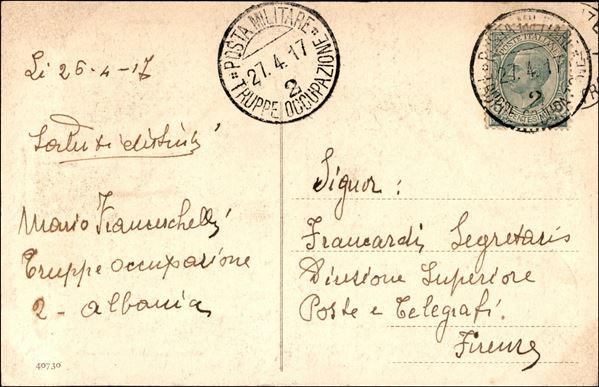 Li 26-4-17
Saluti distinti
Mario Franceschelli
Truppe occupazione
2 - Albania
40730
POSTA MILITARE
27.4.17
2
TRUPPE OCCUPAZIONE
POSTE ITALIANE
27.4.1
2
Signor:
Francardi Segretario
Divisione Superiore
Poste e Telegrafi.
Firenze